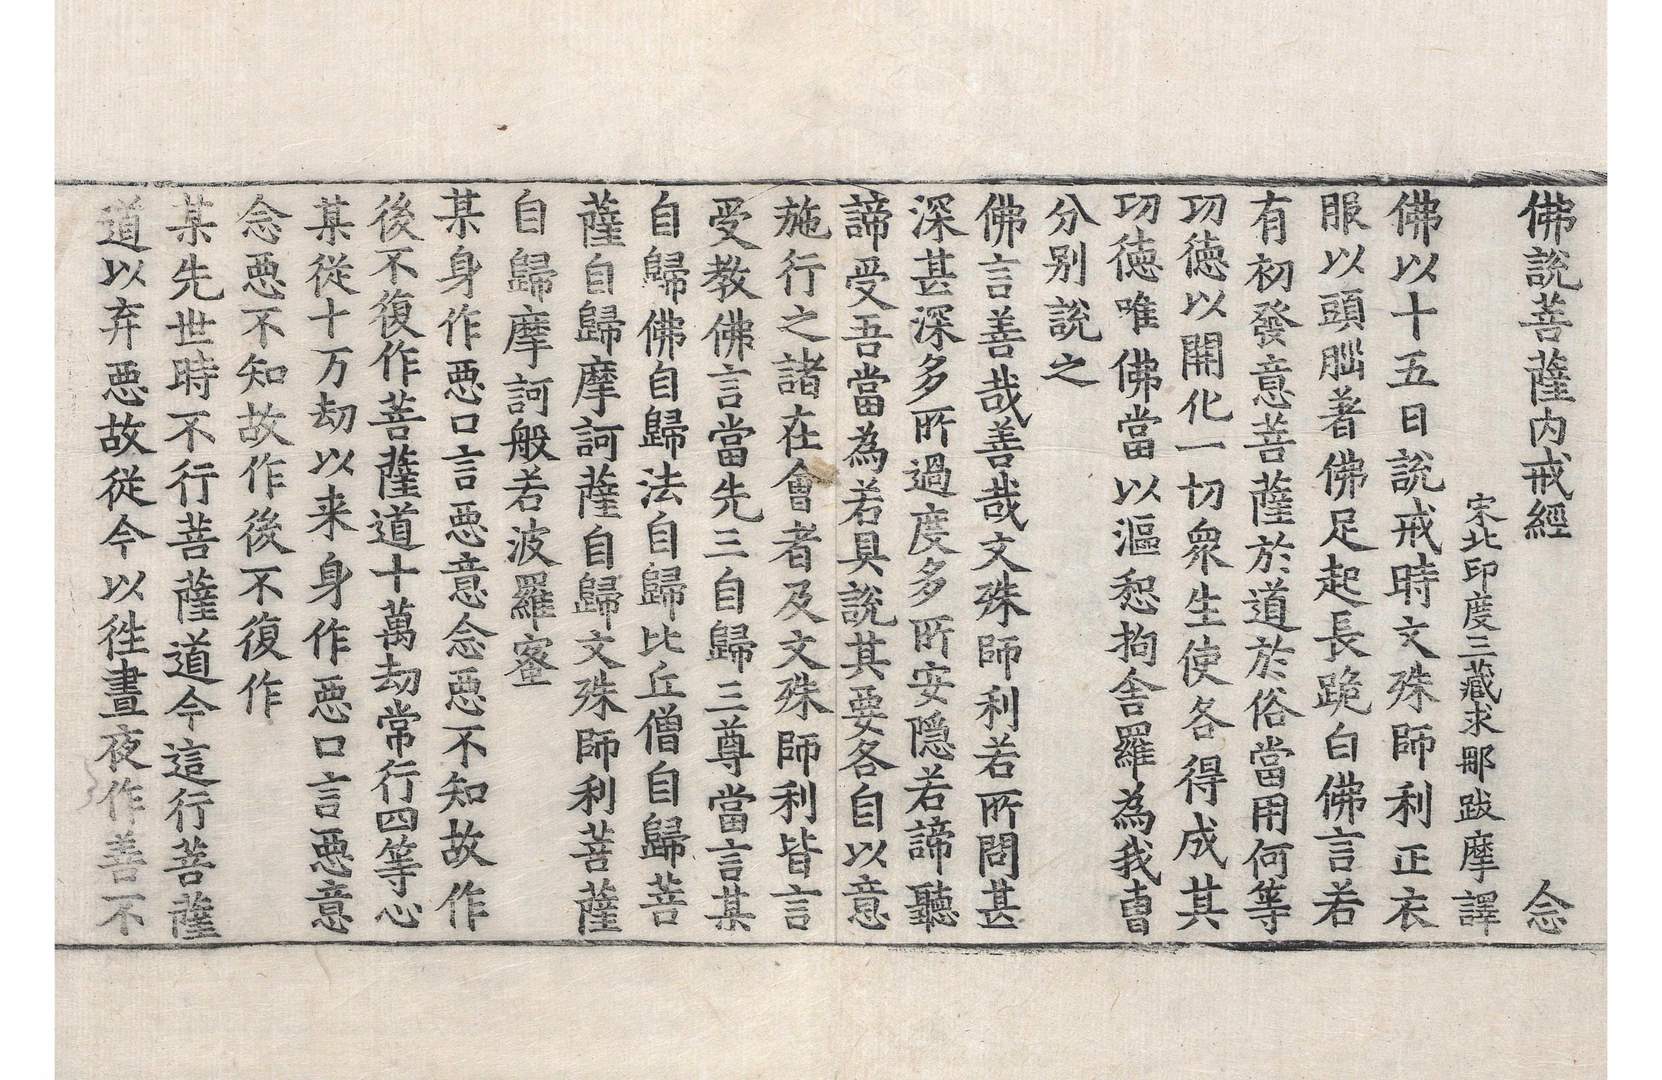 佛說菩薩内戒經 念
宋北印度三藏求那跋摩譯
佛以十五日說戒時文殊師利正衣
服以頭𦛁著佛足起長跪白佛言若
有初發意菩薩於道於俗當用何等
功徳以開化一切衆生使各得成其
功徳唯佛當以漚惒拘舍羅為我曹
分別說之
佛言善哉善哉文殊師利若所問甚
深甚深多所過度多所安隱若諦聽
諦受吾當為若具說其要各自以意
施行之諸在會者及文殊師利皆言
受教佛言當先三自歸三尊當言某
自歸佛自歸法自歸比丘僧自歸菩
薩自歸摩訶薩自歸文殊師利菩薩
自歸摩訶般若波羅蜜
某身作惡口言惡意念惡不知故作
後不復作菩薩道十萬劫常行四等心
某從十万劫以来身作惡口言惡意
念惡不知故作後不復作
某先世時不行菩薩道今這行菩薩
道以弃惡故從今以徃晝夜作善不